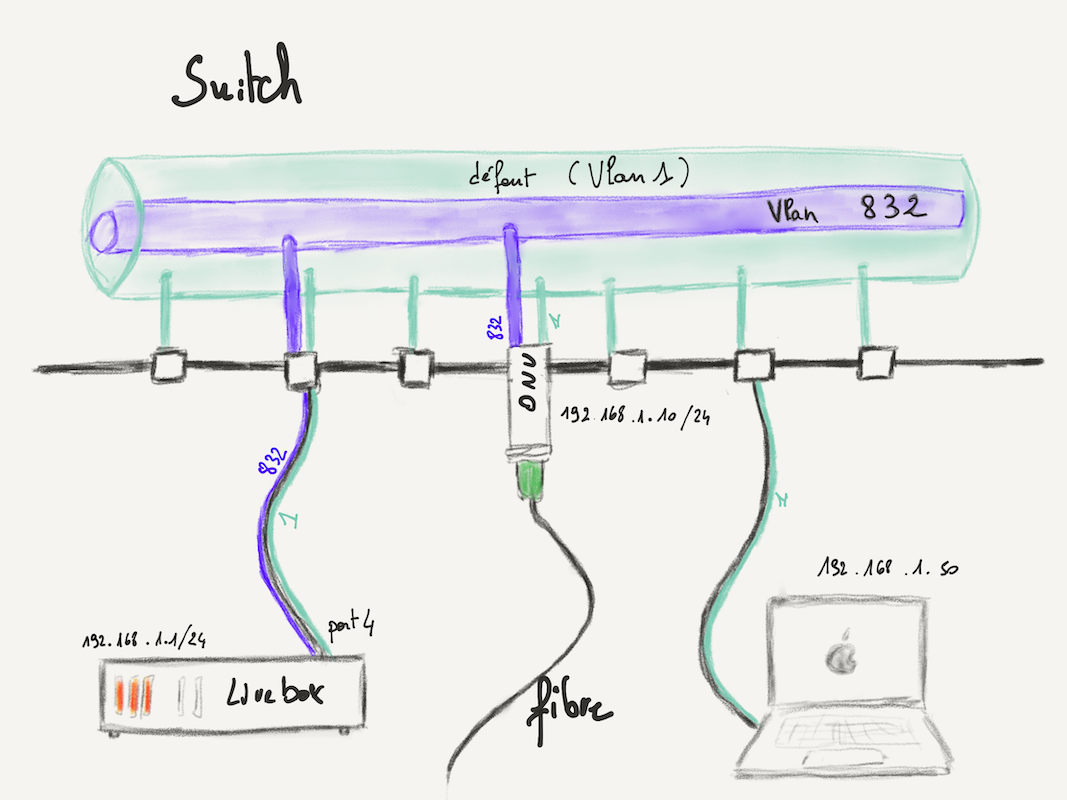 Switch
défaut (Vlan 1)
Vlan 832
832
1
ONU
192.168.1.10/24
832
1
1
192.168.1.50
port 4
192.168.1.1/24
Livebox
fibre